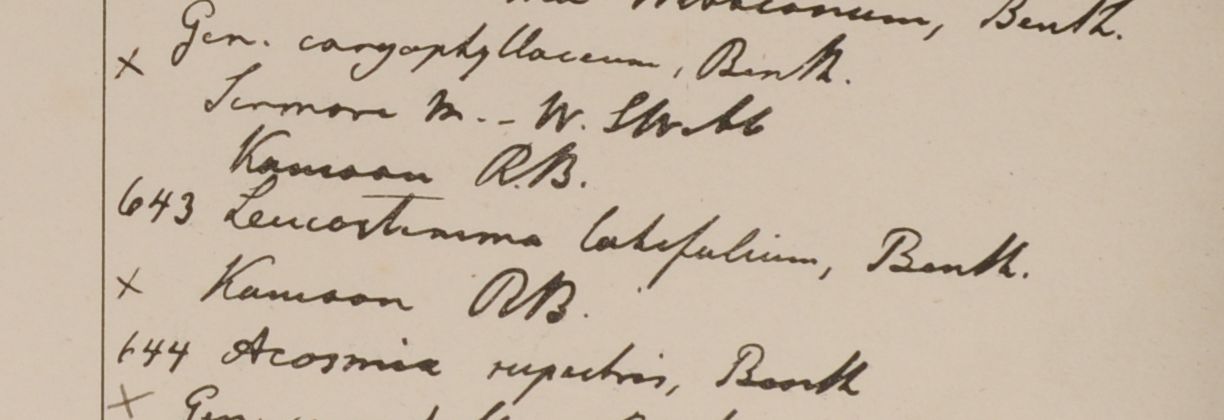 Webbianum, Benth.
Gen. caryophyllaceum, Benth.
x
Sirmore M. - W. S. Webb
Kamaon R.B.
643 Leucostemma latifolium, Benth.
x Kamaon RB.
644 Acosmia rupestris, Benth
x Gen.